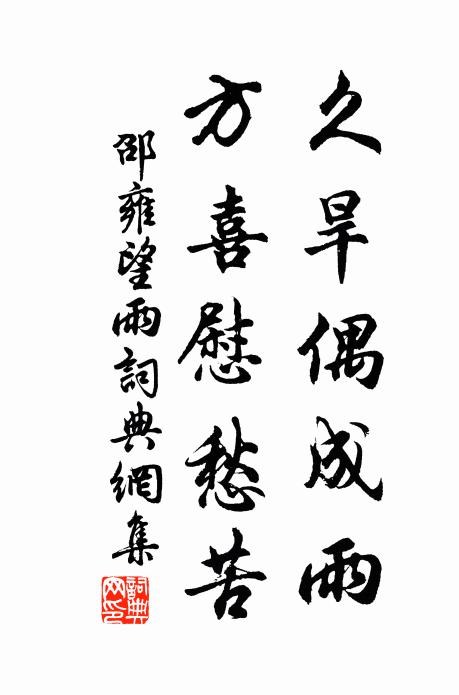 久旱偶成雨
方喜慰愁苦
邵雍望雨詞典網集